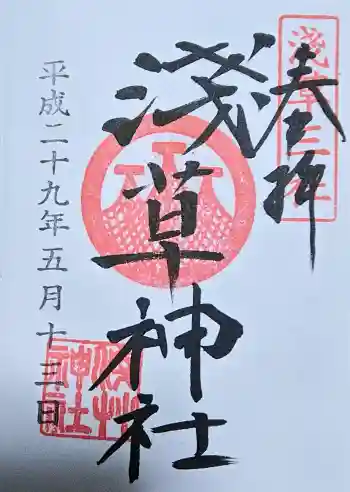 奉拝
淺草三社
淺草神社
平成二十九年五月十三日
淺草神社